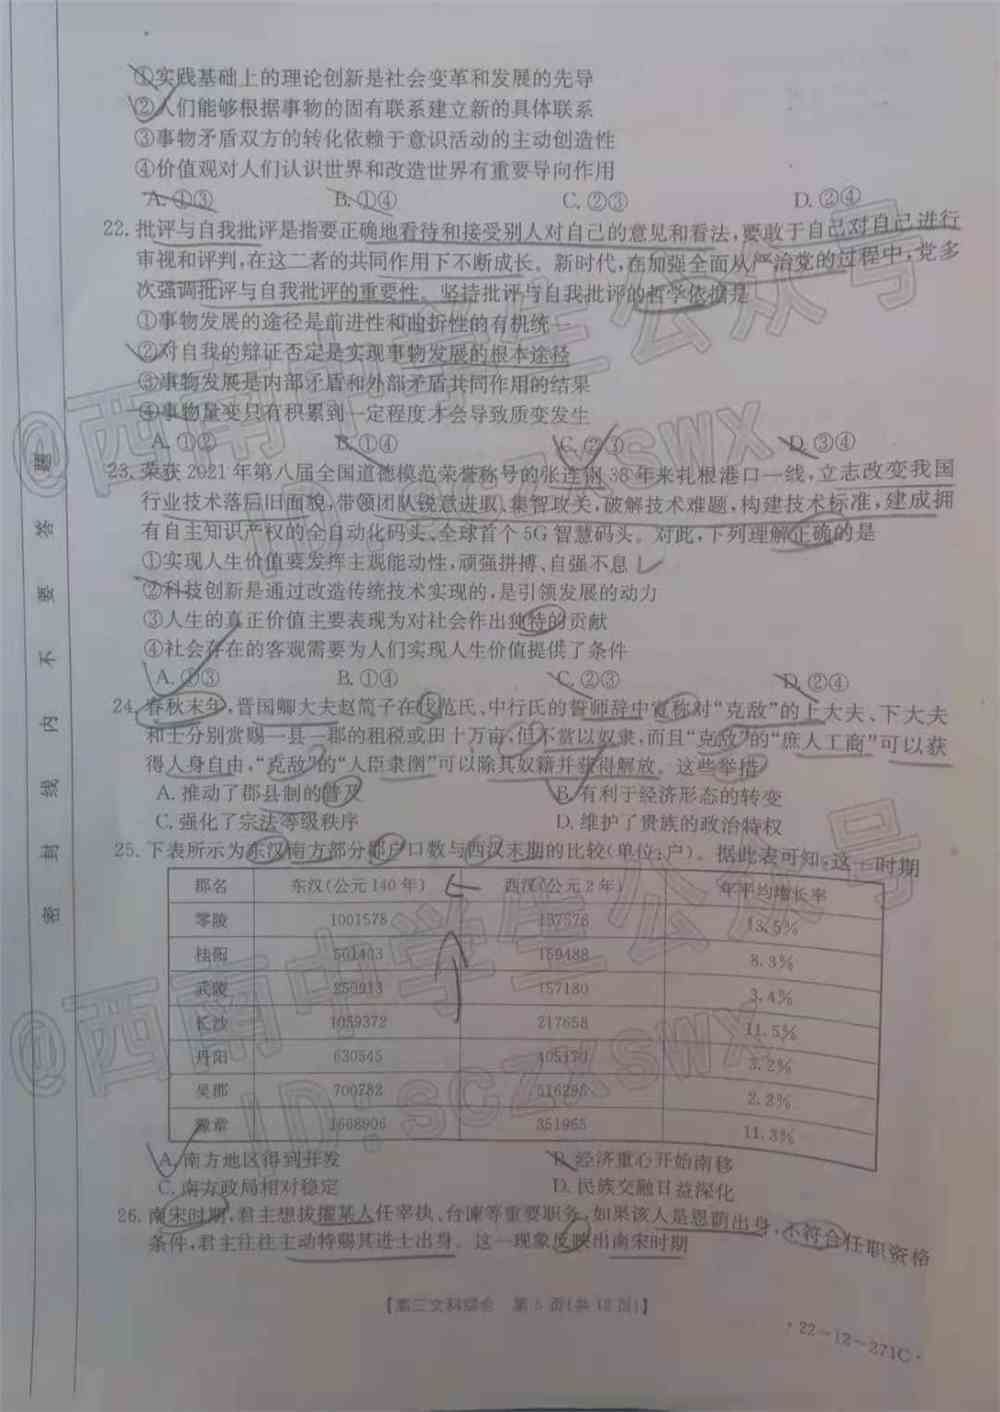 ①实践基础上的理论创新是社会变革和发展的先导
②人们能够根据事物的固有联系建立新的具体联系
③事物矛盾双方的转化依赖于意识活动的主动创造性
④价值观对人们认识世界和改造世界有重要导向作用
A. ①③ B. ①④ C. ②③ D. ②④
22. 批评与自我批评是指要正确地看待和接受别人对自己的意见和看法,要敢于自己对自己进行
审视和评判,在这二者的共同作用下不断成长。新时代,在加强全面从严治党的过程中,党多
次强调批评与自我批评的重要性。坚持批评与自我批评的哲学依据是
①事物发展的途径是前进性和曲折性的有机统一
②对自我的辩证否定是实现事物发展的根本途径
③事物发展是内部矛盾和外部矛盾共同作用的结果
④事物量变只有积累到一定程度才会导致质变发生
A. ①② B. ①④ C. ②③ D. ③④
23. 荣获 2021 年第八届全国道德模范荣誉称号的张连钢 38 年来扎根港口一线,立志改变我国
行业技术落后旧面貌,带领团队锐意进取、集智攻关,破解技术难题,构建技术标准,建成拥
有自主知识产权的全自动化码头、全球首个 5G 智慧码头。对此,下列理解正确的是
①实现人生价值要发挥主观能动性,顽强拼搏、自强不息
②科技创新是通过改造传统技术实现的,是引领发展的动力
③人生的真正价值主要表现为对社会作出独特的贡献
④社会存在的客观需要为人们实现人生价值提供了条件
A. ①③ B. ①④ C. ②③ D. ②④
24. 春秋末年,晋国卿大夫赵简子在伐范氏、中行氏的誓师辞中宣称对“克敌”的上大夫、下大夫
和士分别赏赐一县一郡的租税或田十万亩,但不赏以奴隶,而且“克敌”的“庶人工商”可以获
得人身自由,“克敌”的“人臣隶圉”可以除其奴籍并获得解放。这些举措
A. 推动了郡县制的普及 B. 有利于经济形态的转变
C. 强化了宗法等级秩序 D. 维护了贵族的政治特权
25. 下表所示为东汉南方部分郡户口数与西汉末期的比较(单位:户)。据此表可知,这一时期
郡名 东汉(公元 140 年) 西汉(公元 2 年) 年平均增长率
零陵 1001578 13.5%
桂阳 159488 8.3%
武陵 157180 3.4%
长沙 1059372 217658 11.5%
丹阳 630545 3.2%
吴郡 700782 2.2%
豫章 1668906 351965 11.3%
A. 南方地区得到开发 B. 经济重心开始南移
C. 南方政局相对稳定 D. 民族交融日益深化
26. 南宋时期,君主想拔擢某人任宰执、台谏等重要职务,如果该人是恩荫出身,不符合任职资格
条件,君主往往主动特赐其进士出身。这一现象反映出南宋时期
【高三文科综合 第 5 页(共 12 页)】
·22-12-271C·
密 封 线 内 不 要 答 题
@西南中学生公众号
ID:SCZXSWX
@西南中学生公众号
ID:SCZXSWX